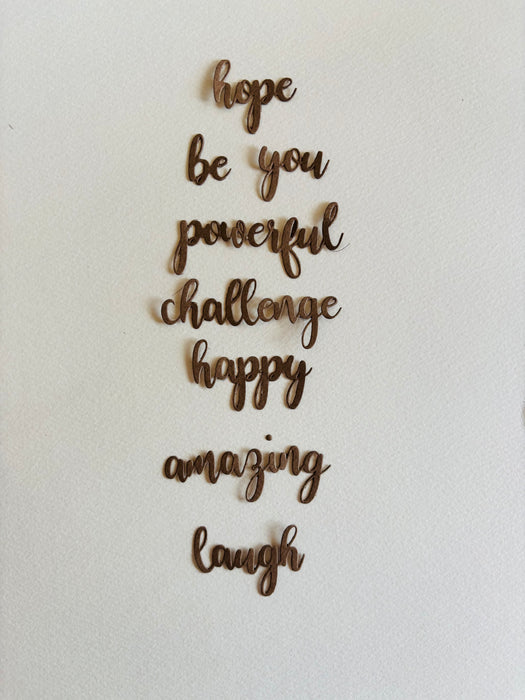 hope
be you
powerful
challenge
happy
amazing
laugh